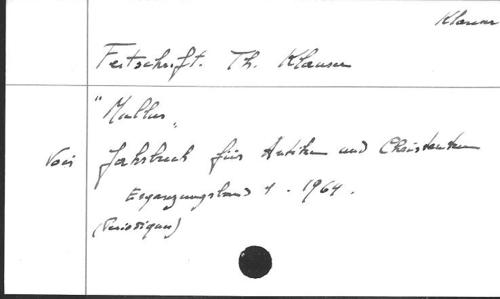 Klauser
Festschrift. Th. Klauser
"Mullus"
Voir Jahrbuch für Antike und Christentum
Ergänzungsband 1. 1964.
(Périodiques)